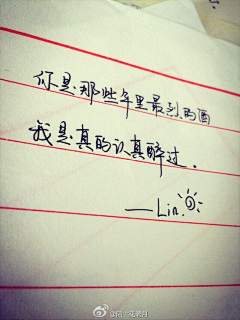 你是那些年里最烈的酒
我是真的认真醉过.
——Lin